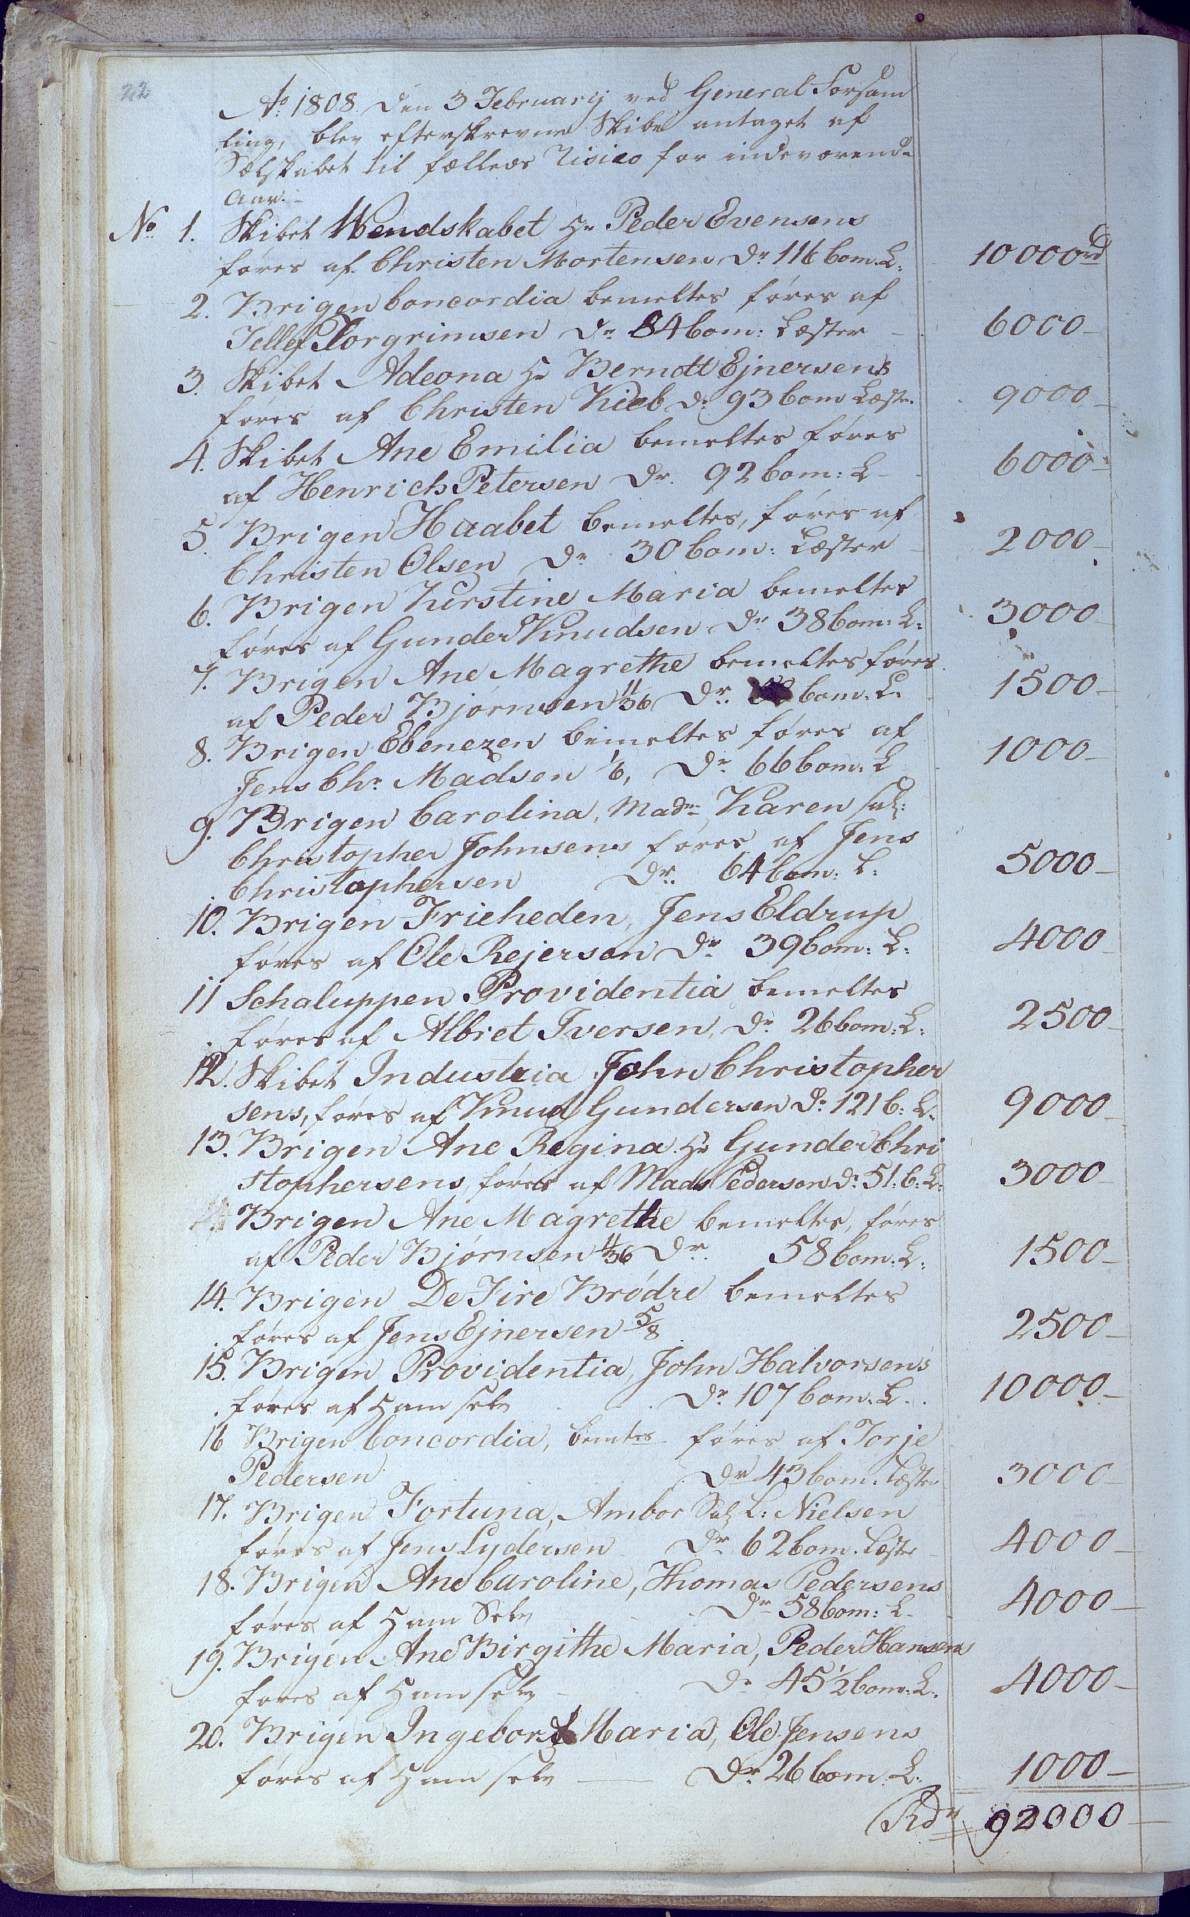 22
Ao 1808 den 3 Februarij ved General Forsam
ling, blev efterskrevne Skibe antaget af
Sælskabet til fælleds Risico for indeværende
Aar.
No 1. Skibet Wendskabet Hr Peder Evensens
føres af Christen Mortensen Dr 116 Com. L. 10000rd
2. Brigen Concordia bemeltes føres af
Tellef Torgrimsen Dr 84 Com: Læster 6000
3. Skibet Adeona Hr Berndt Ejnersens
føres af Christen Kieb Dr 93 Com Læste. 9000
4. Skibet Ane Emilia bemeltes føres
af Henrich Petersen Dr. 92 Com: L 6000
5. Brigen Haabet bemeltes, føres af
Christen Olsen Dr 30 Com: Læster 2000
6. Brigen Kirstine Maria bemeltes
føres af Gunder Knudsen Dr 38 Com: L: 3000
7. Brigen Ane Magrethe bemeltes føres
af Peder Bjørnsen 11/36 Dr. Com. L. 1500
8. Brigen Ebenezen bemeltes føres af
Jens Chr. Madsen 1/6, Dr 66 Com. L 1000
9. Brigen Carolina, Madm Karen sal:
Christopher Johnsens føres af Jens
Christophersen Dr. 64 Com: L. 5000
10. Brigen Frieheden, Jens Eldrup
føres af Ole Rejersen Dr 39 Com: L: 4000
11 Schaluppen Providentia bemeltes
føres af Albret Iversen, Dr 26 Com: L. 2500
12. Skibet Industria John Christopher
sens, føres af Knud Gundersen Dr 121 C: L. 9000
13. Brigen Ane Regina Hr Gunder Chri
stophersens føres af Mads Pedersen Dr. 51. C: L: 3000
Brigen Ane Magrethe bemeltes, føres
af Peder Bjørnsen 11/36 Dr. 58 Com: L: 1500
14. Brigen De Fire Brødre bemeltes
føres af Jens Ejnersen 5/8 2500
15. Brigen Providentia, John Halvorsens
føres af Ham selv Dr 107 Com. L. 10000
16 Brigen Concordia, bemtes føres af Torje
Pedersen Dr 43 Com: Læste 3000
17. Brigen Fortuna, Ambor Sal L: Nielsen
føres af Jens Lydersen Dr 62 Com. Læste 4000
18. Brigen Ane Caroline, Thomas Pedersens
føres af Ham Selv Dr 58 Com: L. 4000
19. Brigen Ane Birgithe Maria, Peder Hansens
føres af Ham selv Dr 45 1/2 Com: L. 4000
20. Brigen Ingebort Maria, Ole Jensens
føres af Ham selv Dr 26 Com. L. 1000
Rdr 92000